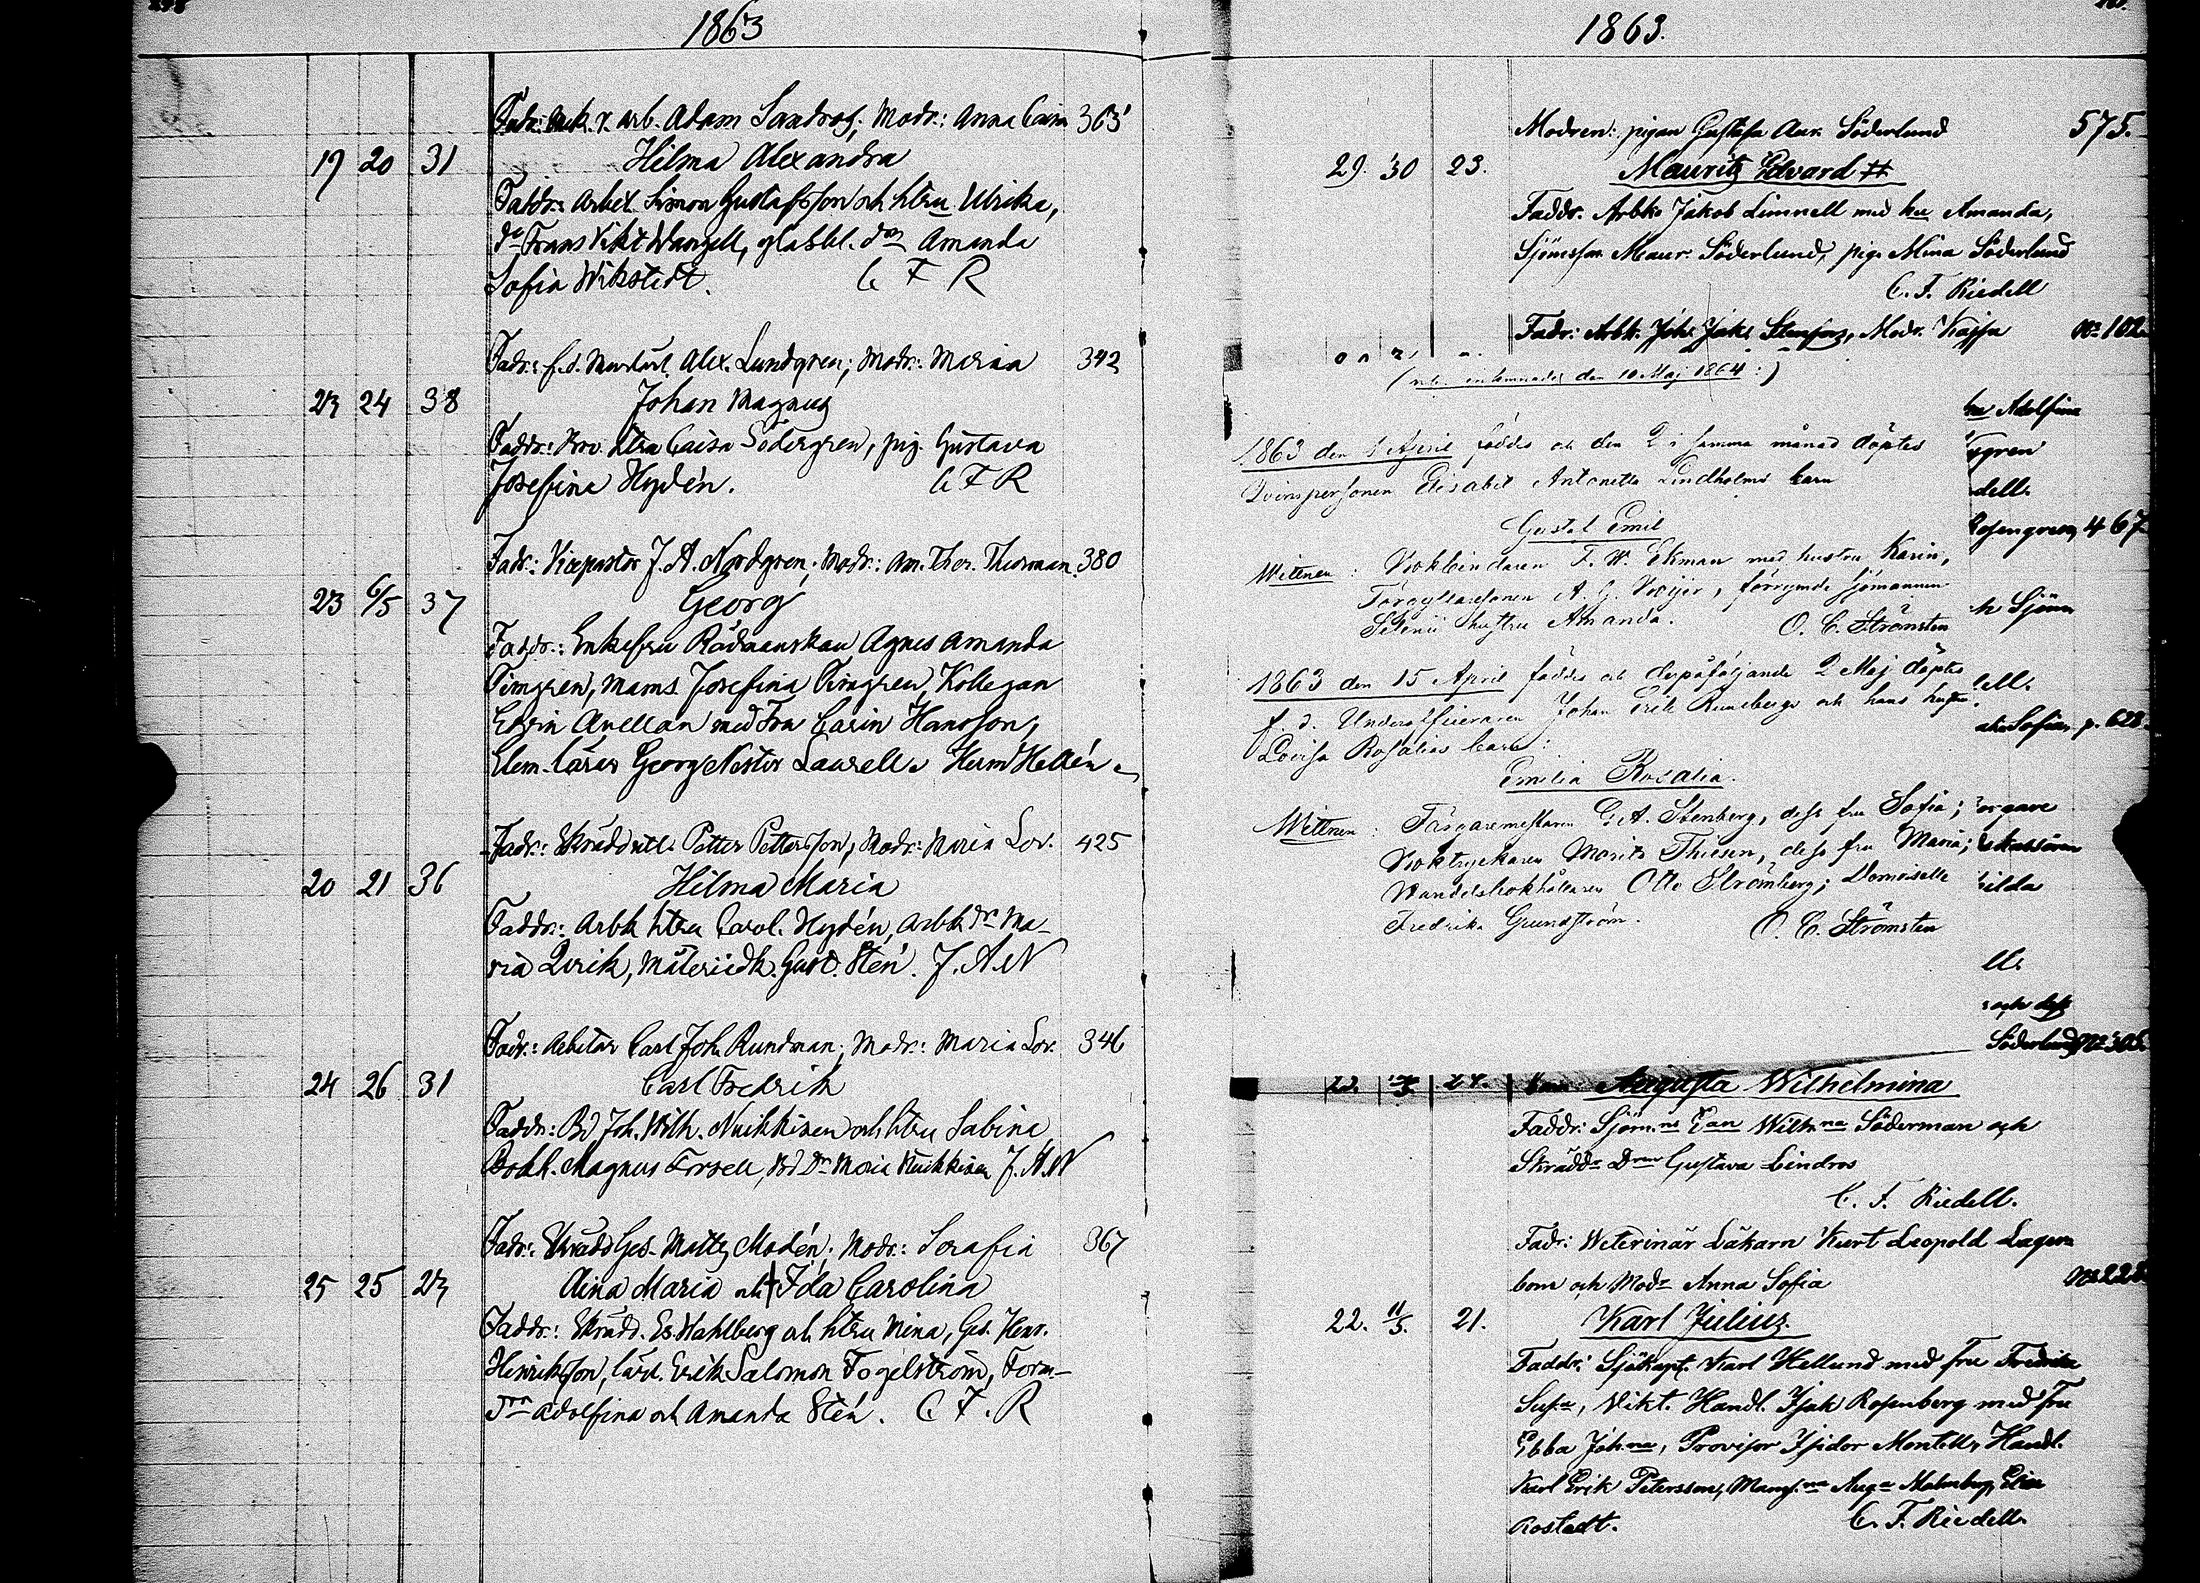 1863
Fadr: arb. Adam Sandros; Modr: Anna Caisa 363
19 20 31 Hilma Alexandra
Faddr: Arbet. Simon Gustafsson och hstru Ulrika,
Frans Vikt Wangell, Amanda
Sofia Wikstedt. C F R
Fadr: f.d. Alex. Lundgren; Modr: Maria 342
23 24 38 Johan Magnus
Faddr: hstru Caisa Södergren, pig. Gustava
Josefina Hydén. C F R
Fadr: Vicepastor J. A. Nordgren, Modr: Am. Ther. Thurman 380
23 6/5 37 Georg
Faddr: Enkefru Rådmanskan Agnes Amanda
Timgren, Mams. Josefina Timgren, Kollegan
Edvin Avellan med Fru Carin Hansson,
Elem. lärar Georg Nestor Laurell Herm Hellén
Fadr: Petter Pettersson, Modr: Maria Lov. 425
20 21 36 Hilma Maria
Faddr: Arbk hstru Carol. Hydén, Arbk Dr Ma-
ria Qvick, Gust. Stén. J. A. N
Fadr: Arbetar Carl Joh. Rundman; Modr: Maria Lov. 346
24 26 31 Carl Fredrik
Faddr: Joh. Wilh. Nuikkinen och hstru Sabina
Bokh. Magnus Forsell, Maria Nuikkinen J. A. N
Fadr: Skrädd Ges. Matts Modén; Modr: Serafia 367
25 25 23 Aina Maria och † Ida Carolina
Faddr: Skrädd. Es. Wahlberg och hstru Mina, Ges. Henr.
Henriksson, lärl. Erik Salomon Fogelström, Form-
Adolfina och Amanda Stén. C. F. R
1863.
Modren: pigan Gustafa Aur. Söderlund 575.
29. 30 23. Mauritz Edvard #
Faddr. Arbk. Jakob Limnell med hu Amanda,
Maur. Söderlund, pig. Mina Söderlund
C. F. Riedell
Fadr: Arbk. Joh. Jak. Modr. Kajsa No 102
( den 10 Maj 1864 :)
Adolfina
1863 den 1 April föddes och den 2 i samma månad döptes gren
Qvinspersonen Elisabet Antonetta Lindholms barn dell.
Gustaf Emil Rosengren, 467
Wittnen: Bokbindaren F. W. Ekman med hustru Karin,
A. G. förrymde sjömannen Sjöm
hustru Amanda. O. C. Strömsten
1863 den 15 April föddes och derpåföljande 2 Maj döptes ell.
f. d. Underofficeraren Johan Erik Runebergs och hans hustru Sofia, p. 628.
Lovisa Rosalias barn:
Emilia Rosalia.
Wittnen: Färgaremästaren G. A. Stenberg, dess fru Sofia; organe
Boktryckaren Morits Thiesen, dess fru Maria;
Handelsbokhållaren Otto Strömberg; Demoiselle ilda
Fredrika Grundström. O. C. Strömsten
ell.
och dess
Söderlund No 305.
23. 24. Augusta Wilhelmina
Faddr: Wilhna Söderman och
Skrädd Gustava Lindros
C. F. Riedell.
Fadr: Weterinär Läkarn Kurt Leopold Lager
bom och Modr Anna Sofia No 228
22. 11/5. 21. Karl Julius.
Faddr: Sjökapt. Karl Hellund med fru Fredrika
Susa, Vikt. Handl. Isak Rosenberg med fru
Ebba Johna, Provisor Isidor Montell, Handl.
Karl Erik Petersson, Auga Malmberg, Elin
Rostedt. C. F. Riedell.